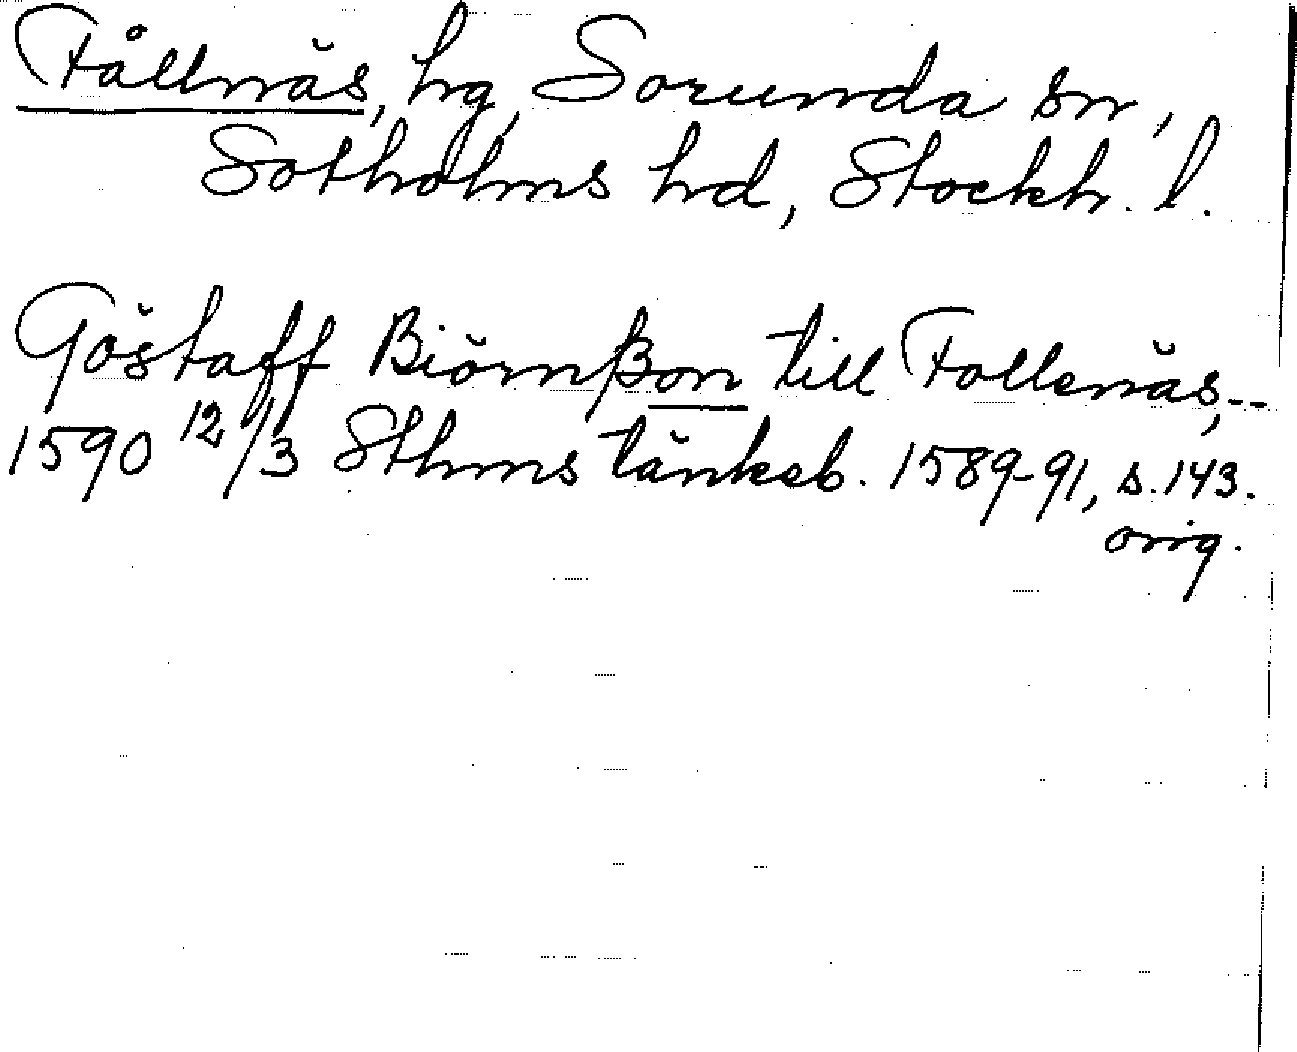 Fållnäs, hg, Sorunda sn,
Sotholms hd, Stockh. l.
Göstaff Biörnßon till Follenäs,--
1590 12/3 Sthms tänkeb. 1589-91, s. 143.
orig.